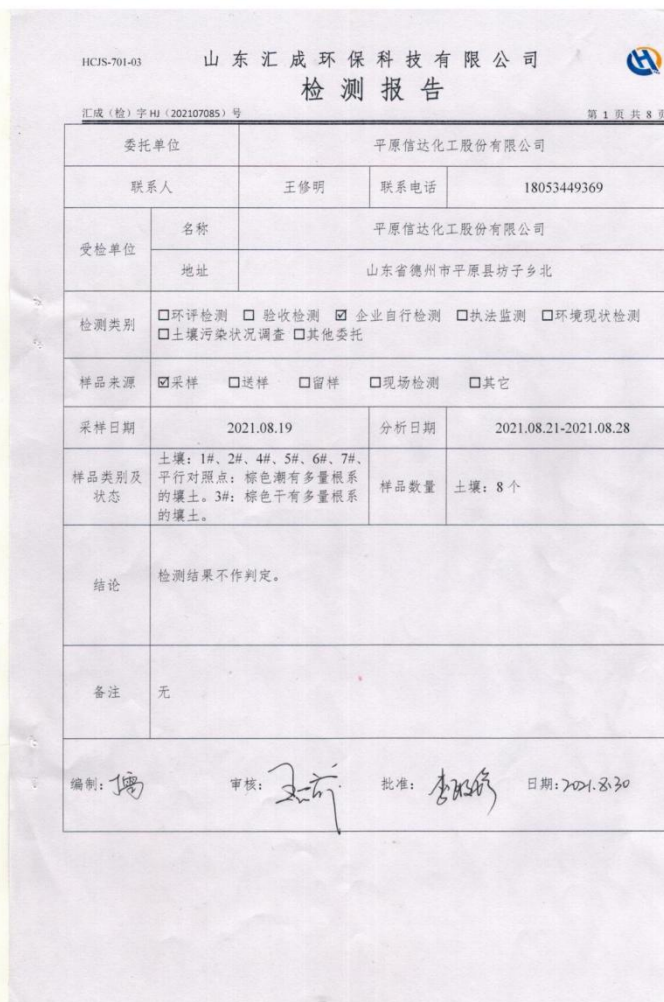 HCJS-701-03
山东汇成环保科技有限公司
检测报告
汇成（检）字 HJ（202107085）号
第 1 页 共 8 页
委托单位 平原信达化工股份有限公司
联系人 王修明 联系电话 18053449369
受检单位 名称 平原信达化工股份有限公司
地址 山东省德州市平原县坊子乡北
检测类别 □环评检测 □ 验收检测 ☑ 企业自行检测 □执法监测 □环境现状检测
□土壤污染状况调查 □其他委托
样品来源 ☑采样 □送样 □留样 □现场检测 □其它
采样日期 2021.08.19 分析日期 2021.08.21-2021.08.28
样品类别及
状态
土壤：1#、2#、4#、5#、6#、7#、
平行对照点：棕色潮有多量根系
的壤土。3#：棕色干有多量根系
的壤土。
样品数量 土壤：8 个
结论 检测结果不作判定。
备注 无
编制： 审核： 批准： 日期：2021.8.30